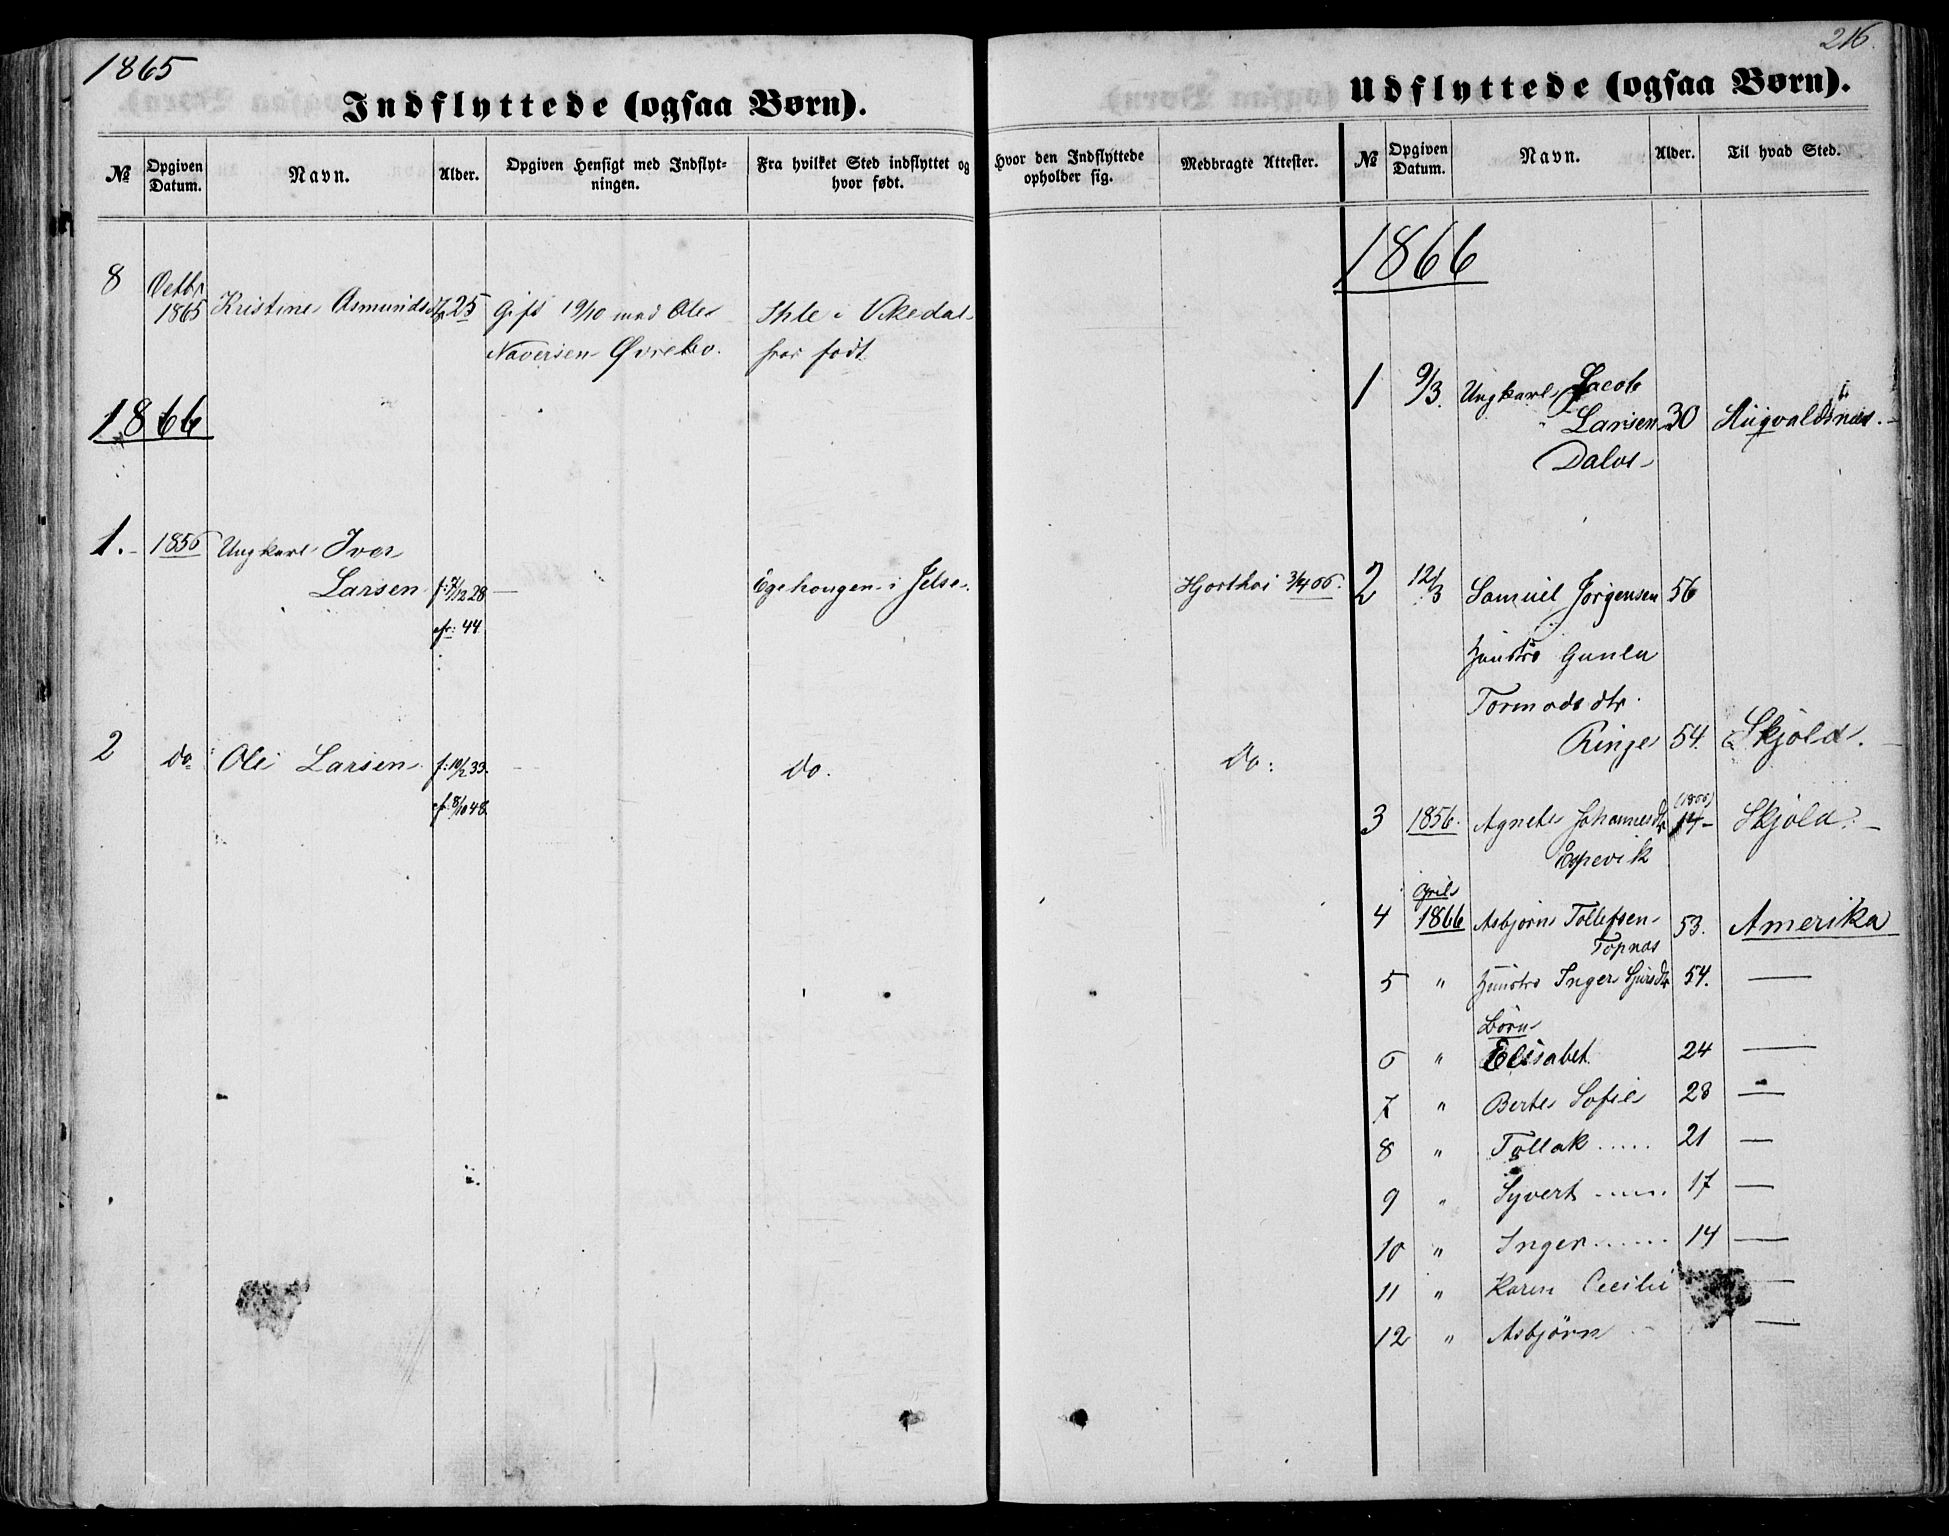 1865
Indflyttede (ogsaa Børn).
№
Opgiven Datum.
Navn.
Alder.
Opgiven Hensigt med Indflyt-
ningen.
Fra hvilket Sted indflyttet og
hvor født.
8
Octbr
1865
Kristine Asmundsdtr
25
Gift 19/10 med Ole
Naversen Øvrebø.
Ihle i Vikedal
hvor født
1866
1.
1856
Ungkarl Iver
Larsen
f: 7/12 28
cfr: 44
Egehougen i Jelse.
Hjorthoi
2
do
Ole Larsen
f: 10/2 33.
cfr 8/10 48
do.
216.
Udflyttede (ogsaa Børn).
Hvor den Indflyttede
opholder sig.
Medbragte Attester.
№
Opgiven
Datum.
Navn.
Alder.
Til hvad Sted.
1866
1
9/3.
Ungkarl Jacob
Larsen
30
Augvaldsnæs.
Dalva
2
12/3
Samuel Jørgensen
56
Hustro Gunla
Tormodsdtr
Ringe
54.
Skjold.
do:
3
1856.
Agnete Johannesdtr
14
Skjold.
Espevik
4
April
1866
Asbjørn Tollefsen
53.
Amerika
Topnæs
5
"
Hustro Inger Sjursdtr
54.
—
Børn
6
"
Elisabet
24
—
7
"
Berte Sofie
28
—
8
"
Tollak .....
21
—
9
"
Syvert .....
17
—
10
"
Inger ......
14
—
11
"
Karen Cecilie
—
12
"
Asbjørn
—